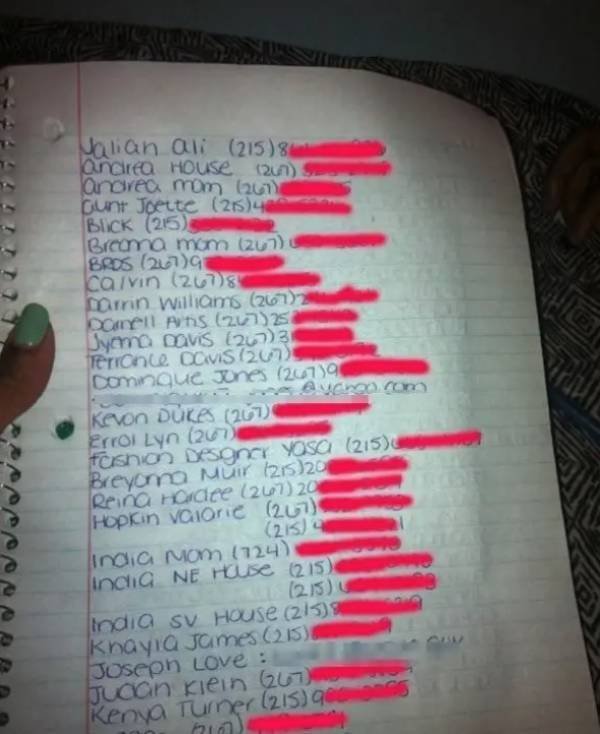 Jalian Ali (215)8
Andrea House (267)
Andrea mom (267)
Aunt Joette (215)4
Blick (215)
Breanna mom (267)
BROS (267)9
Calvin (267)8
Darrin Williams (267)2
Darnell Artis (267)25
Jyenna Davis (267)3
Terrance Davis (267)
Dominque Jones (267)9
@yahoo.com
Kevon Dukes (267)
Errol Lyn (267)
Fashion Designer Yasa (215)
Breyonna Muir (215)20
Reina Hardee (267)20
Hopkin Valorie (267)
(215)4
India Mom (724)
India NE House (215)
(215)
India SV House (215)8
Khayla James (215)
Joseph Love :
Judan Klein (267)
Kenya Turner (215)9
(267)